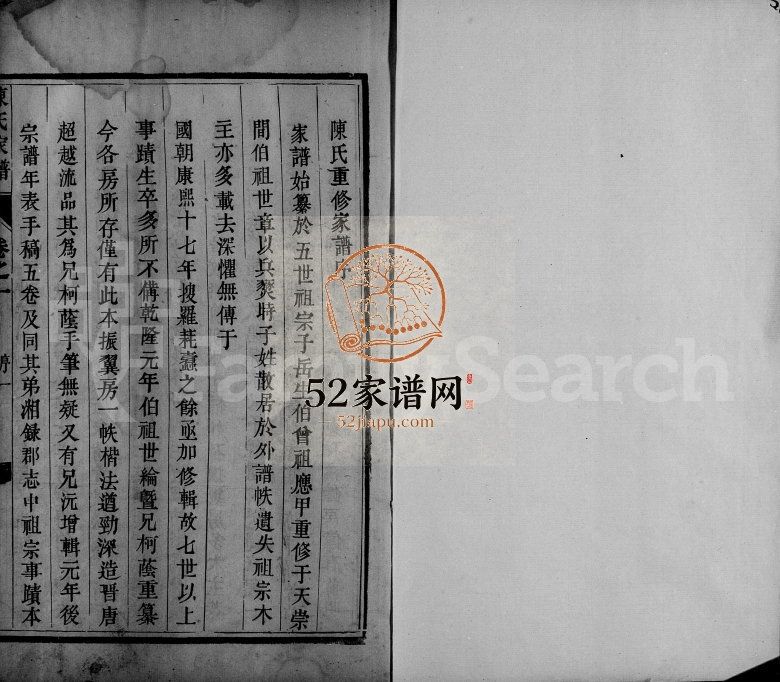 陳氏重修家譜序
家譜始纂於五世祖宗子岳生伯曾祖應甲重修于天崇
間伯祖世章以兵燹時子姓散居於外譜帙遺失祖宗木
主亦多載去深懼無傳于
國朝康熙十七年搜羅耗蠹之餘亟加修輯故七世以上
事蹟生卒多所不備乾隆元年伯祖世綸暨兄柯蔭重纂
今各房所存僅有此本振翼房一帙楷法遒勁深造晉唐
超越流品其為兄柯蔭手筆無疑又有兄沅增輯元年後
宗譜年表手稿五卷及同其弟湘録郡志中祖宗事蹟本
陳氏家譜
卷之一
52家谱网
52jiapu.com
FamilySearch